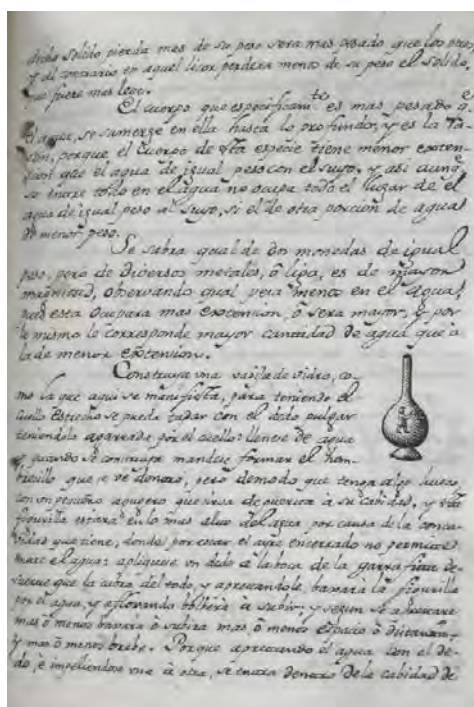 dicho Solido pierda mas de su peso sera mas pesado que los otros,
y al contrario en aquel licor perdera menos de su peso el Solido,
que fuere mas leve.
El cuerpo que especificamte es mas pesado qe
el agua, se sumerge en ella hasta lo profundo, y es la Ra-
son, porque el Cuerpo de esta especie tiene menor exten-
sion que el agua de igual peso con el suyo, y asi aunqe
se entre todo en el agua no ocupa todo el lugar de el
agua de igual peso al Suyo, si el de otra porcion de agua
de menor peso.
Se sabra qual de dos monedas de igual
peso, pero de diversos metales, ô liga, es de mayor
magnitud, observando qual pesa menos en el agua,
pues esta Ocupara mas extencion, ô sera mayor, y por
lo mismo le corresponde mayor cantidad de agua que a
la de menor extencion.
Construya una vasija de vidro, co-
mo la que aqui se manifiesta, para teniendo el
cuello Estrecho se pueda tapar con el dedo pulgar
teniendola agarrada por el cuello: llenese de agua
y quando se construya mandese formar el hom-
brecillo que se ve dentro, pero de modo que tenga algo hueco,
con un pequeño agugero que sirva de puerta â su cabidad, y esta
figurilla estara en lo mas alto del agua por causa de la conca-
vidad que tiene, donde por estar el ayre encerrado no permite
entre el agua: apliquese un dedo â la boca de la garrafita de
suerte que la cubra del todo, y apretandole, baxara la figurilla
por el agua, y aflojando bolbera â subir; y segun se apretare
mas ô menos baxara ô subira mas, ô menos Espacio ô distancia,
y mas ô menos brebe. Porque apretando el agua con el de-
do, e impeliendose una â otra, se entra dentro de la cabidad de